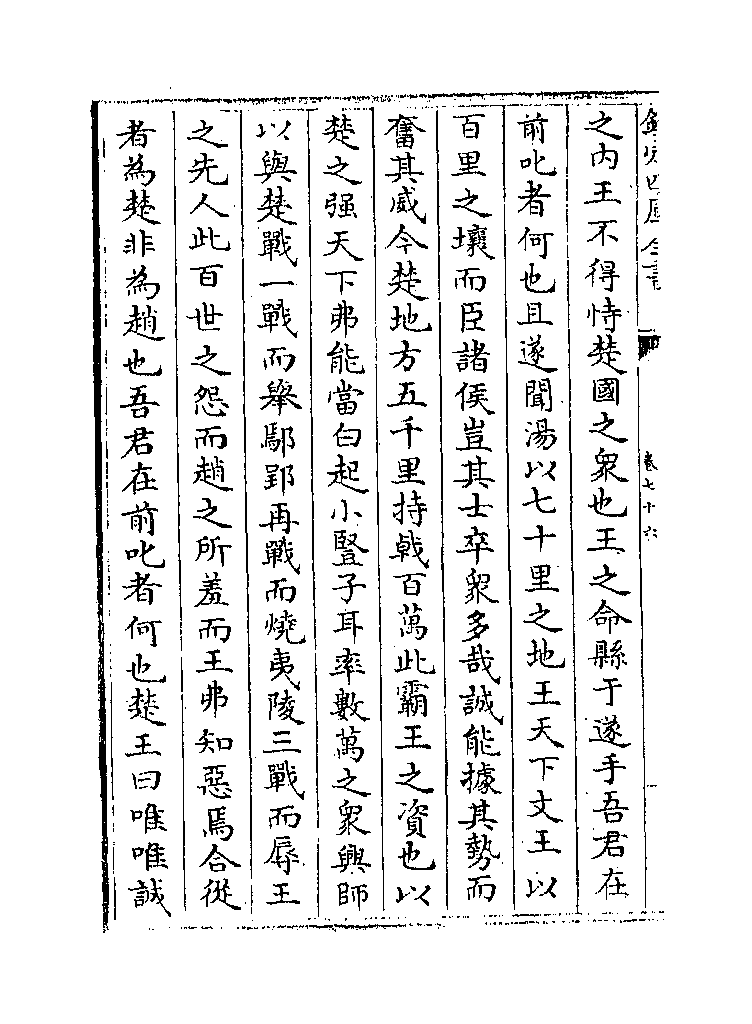 欽定四庫全書
卷七十六
之内王不得恃楚國之衆也王之命縣于遂手吾君在
前叱者何也且遂聞湯以七十里之地王天下文王以
百里之壤而臣諸侯豈其士卒衆多哉誠能據其勢而
奮其威今楚地方五千里持戟百萬此霸王之資也以
楚之强天下弗能當白起小豎子耳率數萬之衆興師
以與楚戰一戰而舉鄢郢再戰而燒夷陵三戰而辱王
之先人此百世之怨而趙之所羞而王弗知惡焉合從
者為楚非為趙也吾君在前叱者何也楚王曰唯唯誠